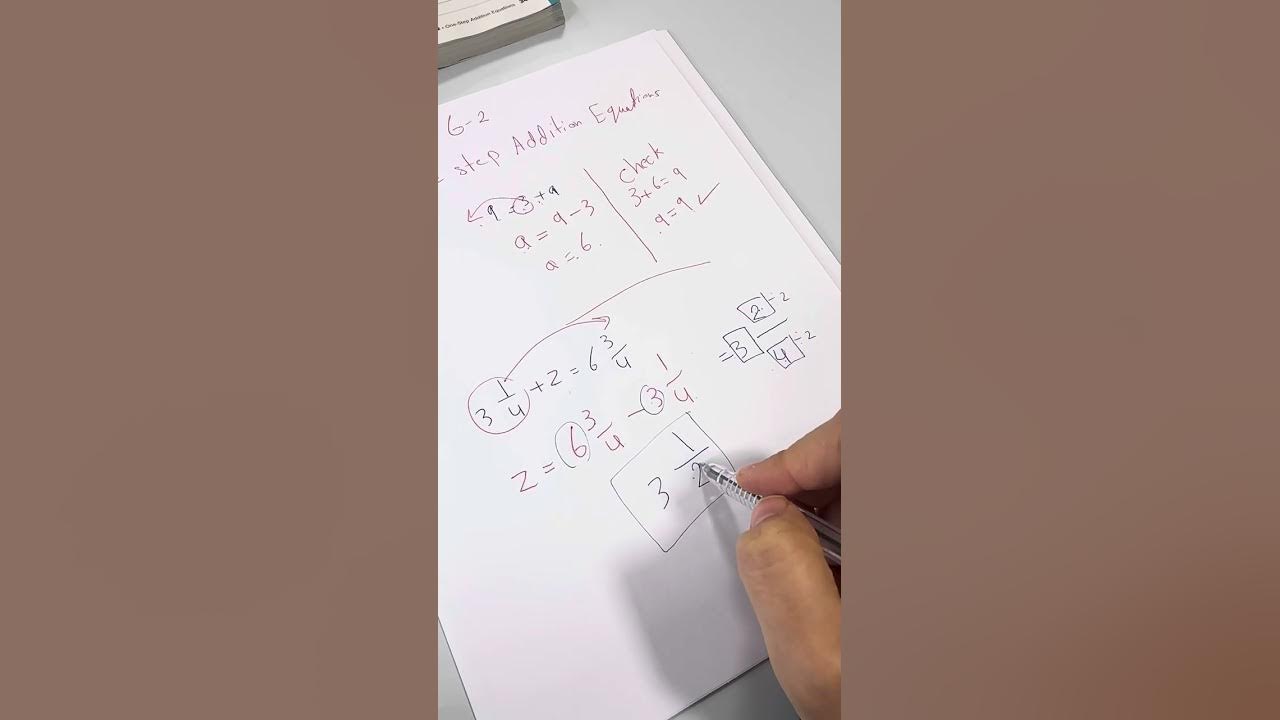 One-Step Addition Equations
6-2
step Addition Equations
9 = 3 + a
a = 9 - 3
a = 6
Check
3+6=9
9=9 ✓
3 1/4 + z = 6 3/4
z = 6 3/4 - 3 1/4
= 3 2÷2/4÷2
3 1/2